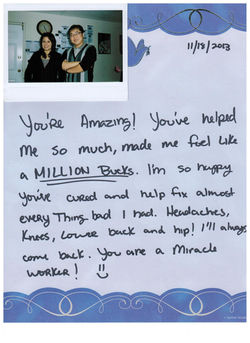 11/18/2013
You're Amazing! You've helped
me so much, made me feel like
a MILLION Bucks. I'm so happy
you've cured and help fix almost
every Thing bad I had. Headaches,
Knees, Lower back and hip! I'll always
come back. You are a Miracle
WORKER!